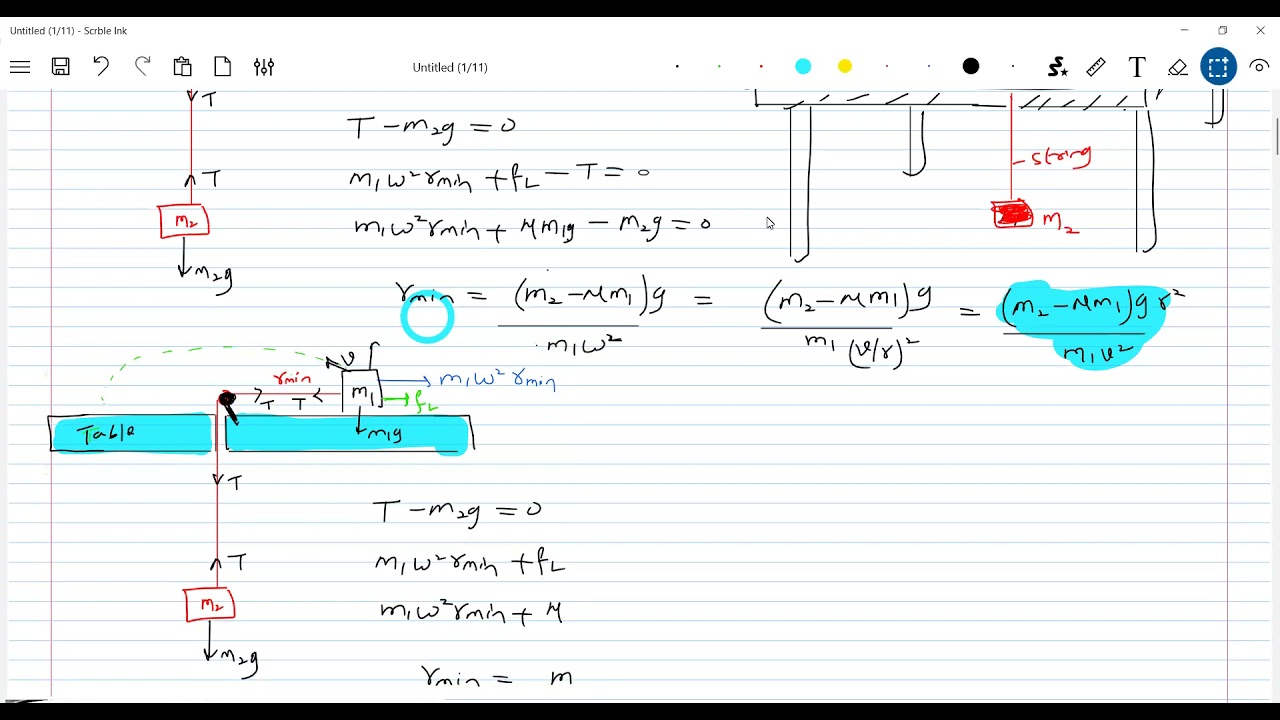 Untitled (1/11) - Scrble Ink
Untitled (1/11)
T
T
T
m₂
m₂g
T - m₂g = 0
m₁ω²rmin + fL - T = 0
m₁ω²rmin + μm₁g - m₂g = 0
string
m₂
rmin = (m₂-μm₁)g / m₁ω² = (m₂-μm₁)g / m₁(v/r)² = (m₂-μm₁)g r² / m₁v²
v
rmin
T T
m₁
m₁ω²rmin
fL
m₁g
Table
T
T
m₂
m₂g
T - m₂g = 0
m₁ω²rmin + fL
m₁ω²rmin + μ
rmin = m